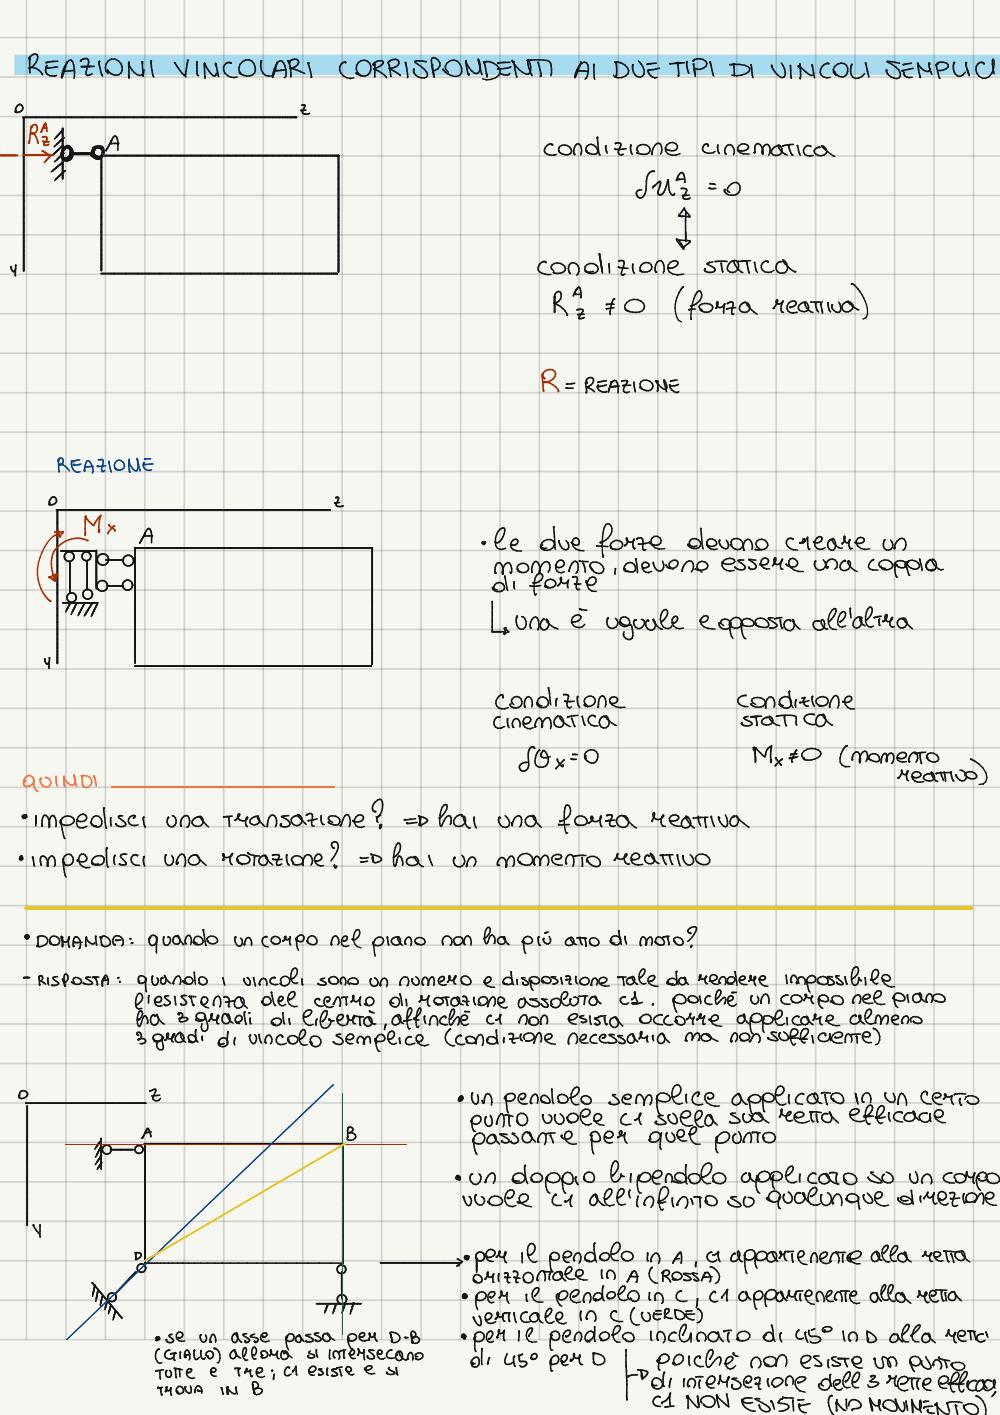 REAZIONI VINCOLARI CORRISPONDENTI AI DUE TIPI DI VINCOLI SEMPLICI
O
z
R_z^A
A
y
condizione cinematica
δu_z^A = 0
condizione statica
R_z^A ≠ 0 (forza reattiva)
R = REAZIONE
REAZIONE
O
z
Mx
A
y
• le due forze devono creare un
momento, devono essere una coppia
di forze
una è uguale e opposta all'altra
condizione
cinematica
δθx = 0
condizione
statica
Mx ≠ 0 (momento
reattivo)
QUINDI
• impedisci una transazione? => hai una forza reattiva
• impedisci una rotazione? => hai un momento reattivo
• DOMANDA: quando un corpo nel piano non ha più atto di moto?
- RISPOSTA: quando i vincoli sono un numero e disposizione tale da rendere impossibile
l'esistenza del centro di rotazione assoluta C1. poiché un corpo nel piano
ha 3 gradi di libertà, affinché C1 non esista occorre applicare almeno
3 gradi di vincolo semplice (condizione necessaria ma non sufficiente)
O
z
A
B
y
D
• un pendolo semplice applicato in un certo
punto vuole C1 sulla sua retta efficace
passante per quel punto
• un doppio bipendolo applicato su un corpo
vuole C1 all'infinito su qualunque direzione
• per il pendolo in A, C1 appartenente alla retta
orizzontale in A (ROSSA)
• per il pendolo in C, C1 appartenente alla retta
verticale in C (VERDE)
• per il pendolo inclinato di 45° in D alla retta
di 45° per D
poiché non esiste un punto
di intersezione dell 3 rette efficaci,
C1 NON ESISTE (NO MOVIMENTO)
• se un asse passa per D-B
(GIALLO) allora si intersecano
tutte e tre; C1 esiste e si
trova in B